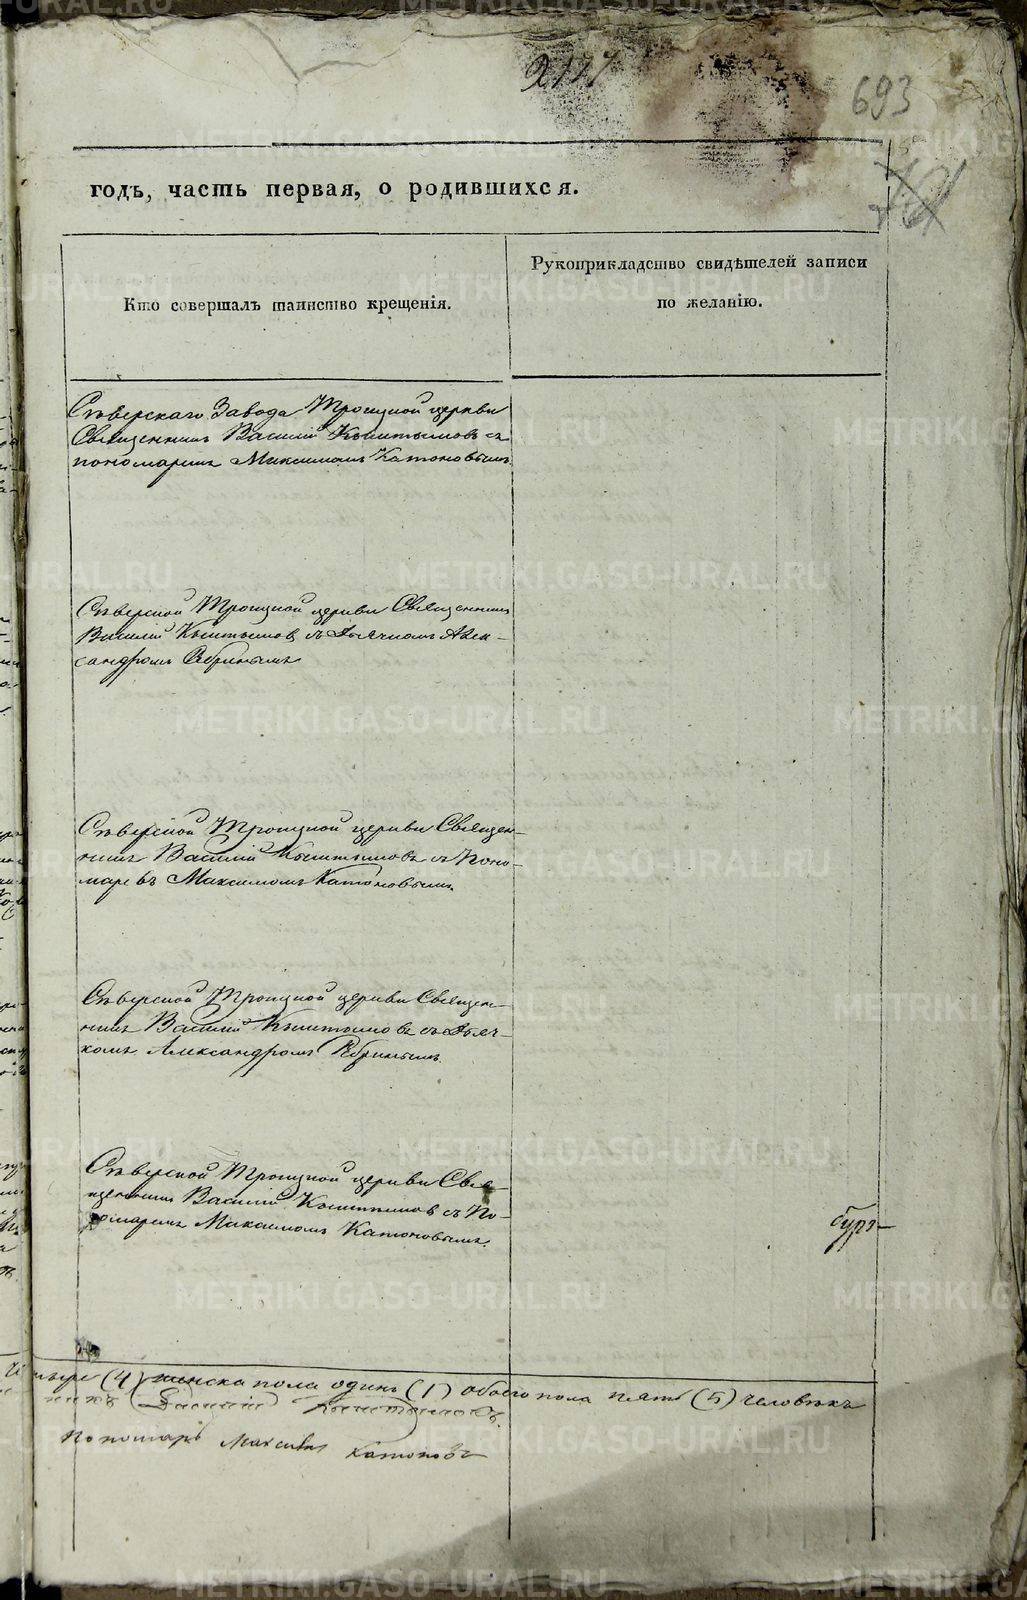 693
годъ, часть первая, о родившихся.
Кто совершалъ таинство крещенія.
Рукоприкладство свидѣтелей записи
по желанію.
Сѣверскаго Завода Троицкой церкви
Священникъ Василій Кыштымовъ съ
пономаремъ Максимомъ Катоновымъ.
Сѣверской Троицкой церкви Священникъ
Василій Кыштымовъ съ Дьячкомъ Алек-
сандромъ
Сѣверской Троицкой церкви Священ-
никъ Василій Кыштымовъ съ Поно-
маремъ Максимомъ Катоновымъ.
Сѣверской Троицкой церкви Священ-
никъ Василій Кыштымовъ съ Дьяч-
комъ Александромъ
Сѣверской Троицкой церкви Свя-
щенникъ Василій Кыштымовъ съ По-
номаремъ Максимомъ Катоновымъ.
бург-
(4) женска пола одинъ (1) обоего пола пять (5) человѣкъ
Василій Кыштымовъ.
Пономарь Максимъ Катоновъ
METRIKI.GASO-URAL.RU